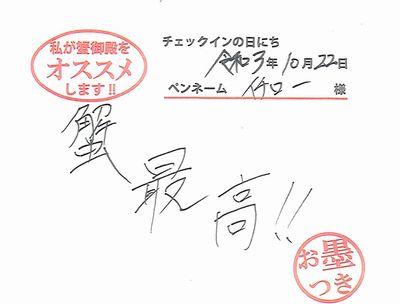 私が蟹御殿を
オススメ
します!!
チェックインの日にち
令和3年10月22日
ペンネーム 仆ロー 様
蟹
最
高!!
お墨
つき